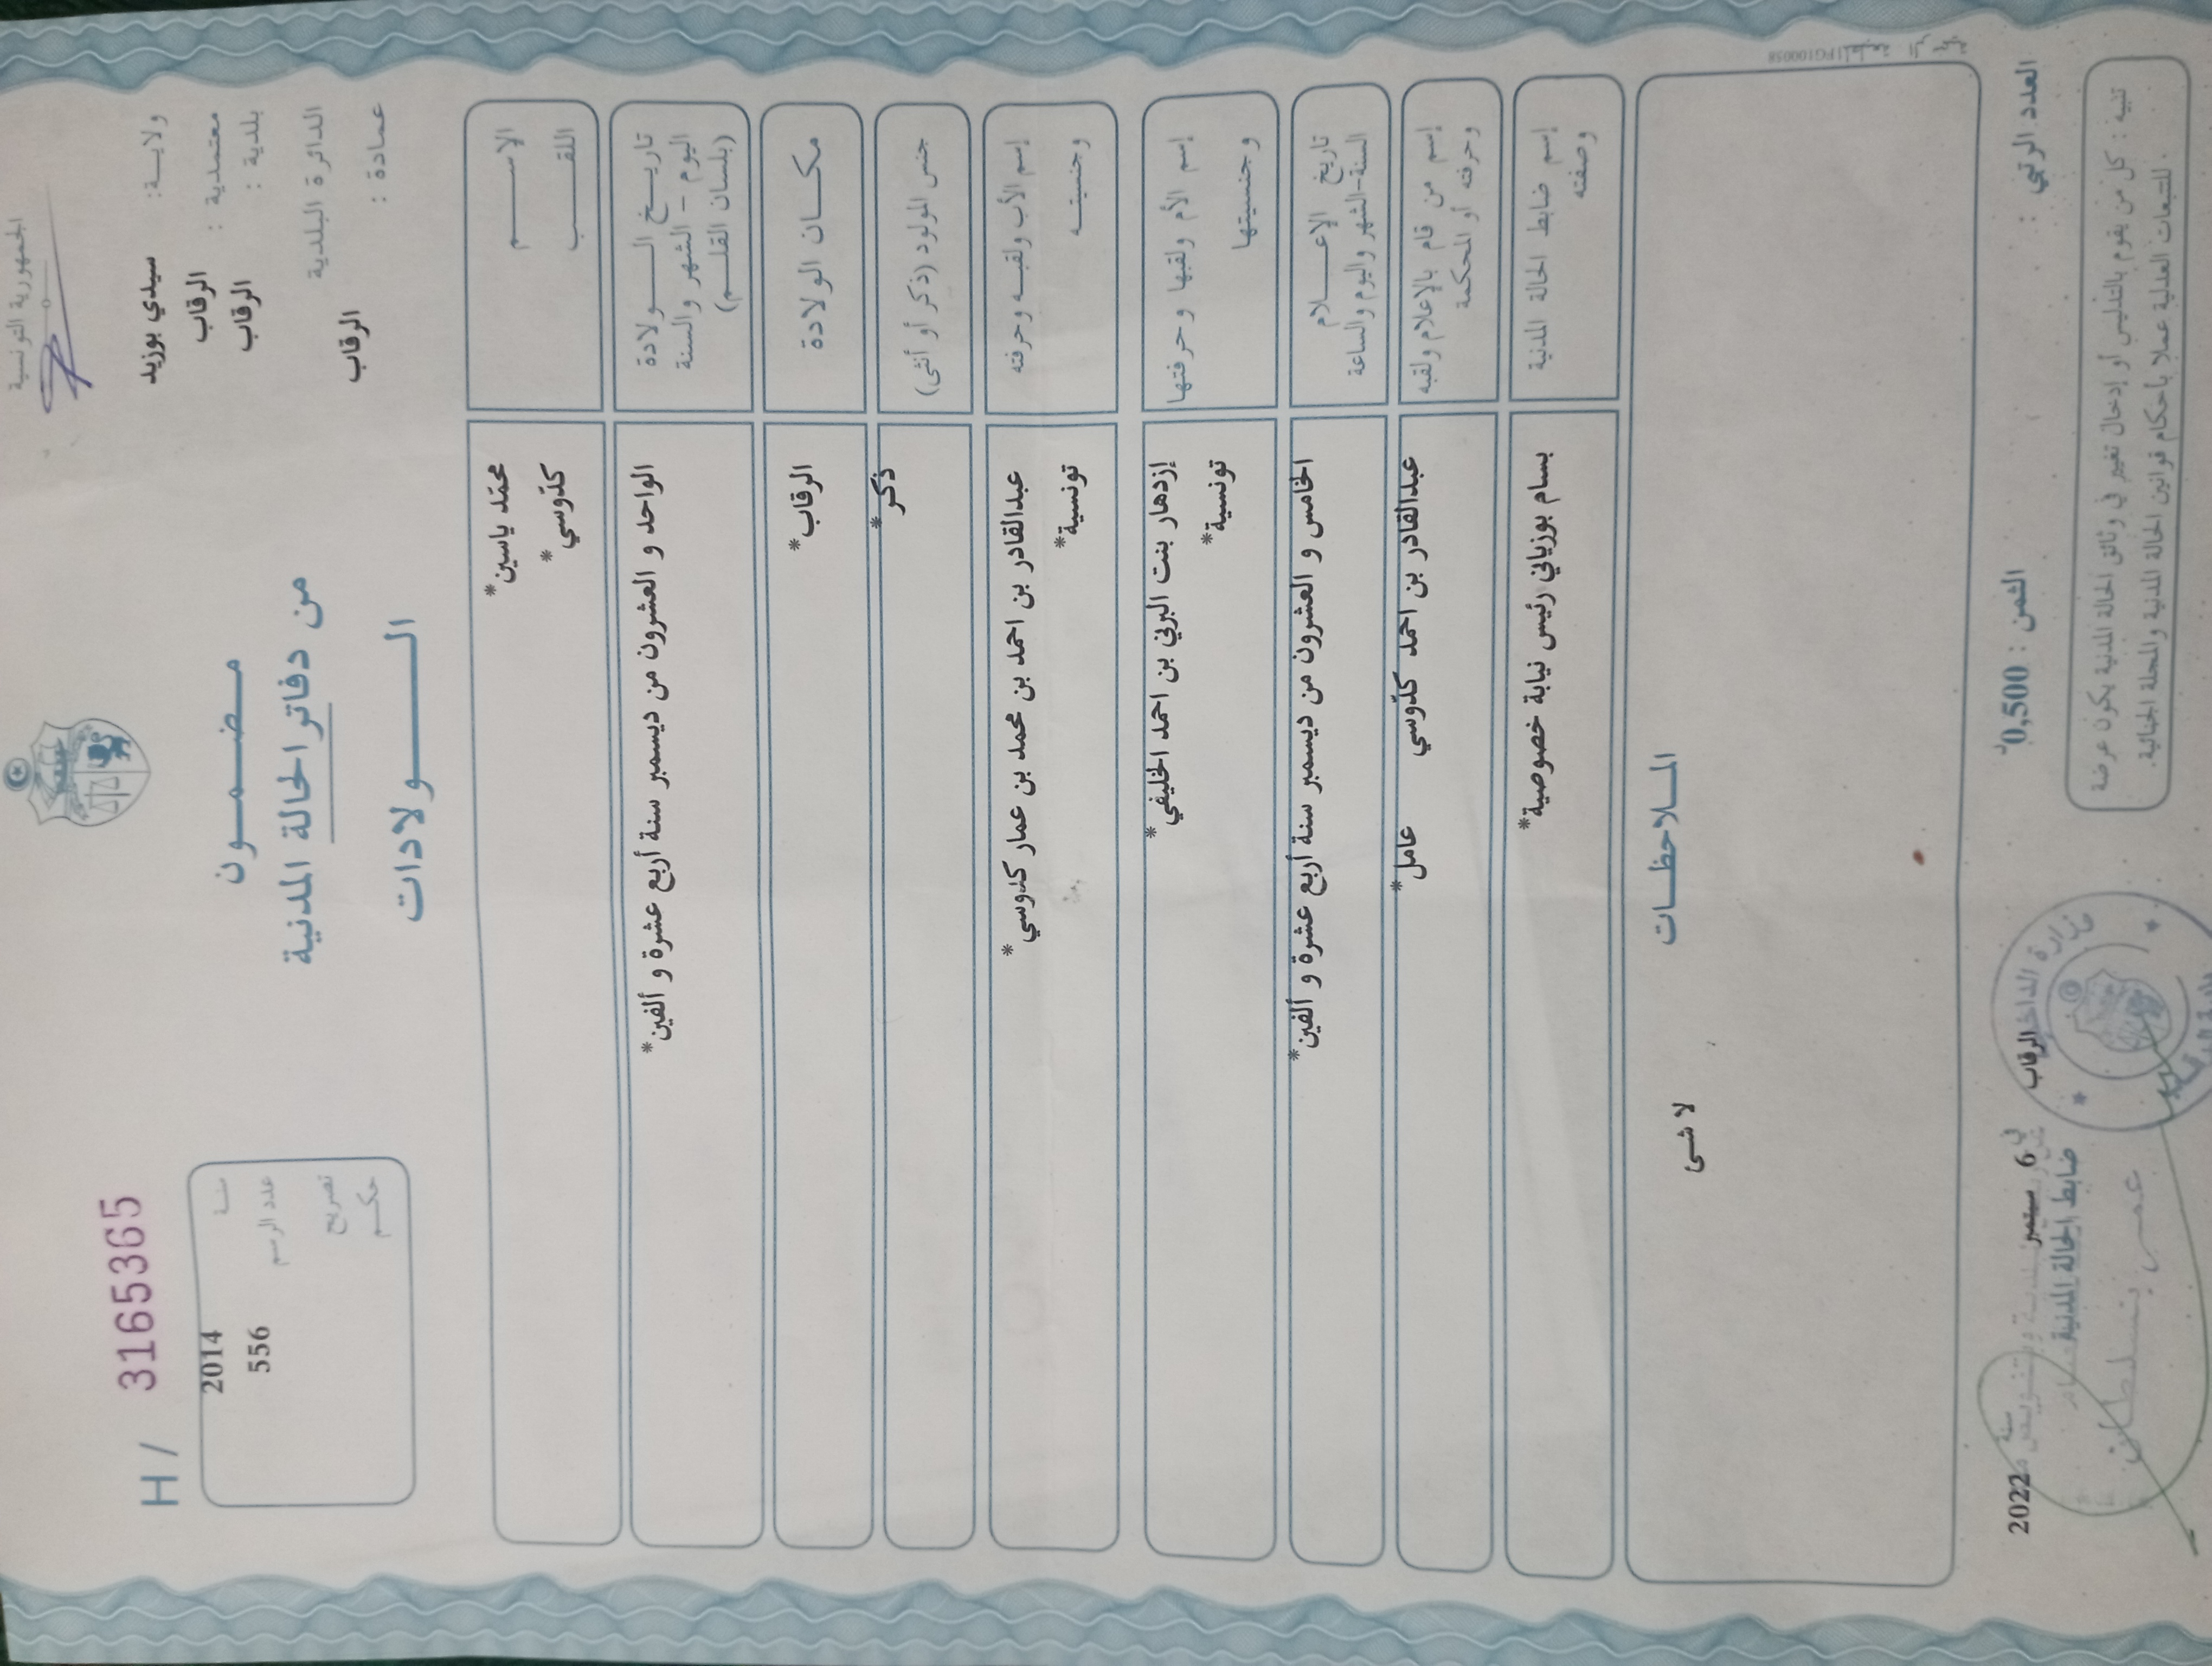 الجمهورية التونسية
ولاية: سيدي بوزيد
معتمدية : الرقاب
بلدية : الرقاب
الدائرة البلدية
الرقاب
عمادة :
H / 3165365
سنة 2014
عدد الرسم 556
تصريح
حكم
مضمون
من دفاتر الحالة المدنية
الولادات
الاسم محمّد ياسين*
اللقب كدّوسي*
تاريخ الولادة الواحد و العشرون من ديسمبر سنة أربع عشرة و ألفين*
اليوم - الشهر والسنة
(بلسان القلم)
مكان الولادة الرقاب*
جنس المولود (ذكر أو أنثى) ذكر*
إسم الأب ولقبه وحرفته عبدالقادر بن احمد بن محمد بن عمار كدوسي*
وجنسيته تونسية*
إسم الأم ولقبها وحرفتها إزدهار بنت البرني بن احمد الخليفي*
وجنسيتها تونسية*
تاريخ الإعلام الخامس و العشرون من ديسمبر سنة أربع عشرة و ألفين*
السنة-الشهر واليوم والساعة
إسم من قام بالإعلام ولقبه عبدالقادر بن احمد كدّوسي عامل*
وحرفته أو المحكمة
إسم ضابط الحالة المدنية بسام بوزياني رئيس نيابة خصوصية*
وصفته
الملاحظات
لا شئ
العدد الرتبي : الثمن : 0,500د
الرقاب في 6 سبتمبر سنة 2022
ضابط الحالة المدنية
وزارة الداخلية
تنبيه : كل من يقوم بالتدليس أو إدخال تغيير في وثائق الحالة المدنية يكون عرضة
للتتبعات العدلية عملا بأحكام قوانين الحالة المدنية والمجلة الجنائية.